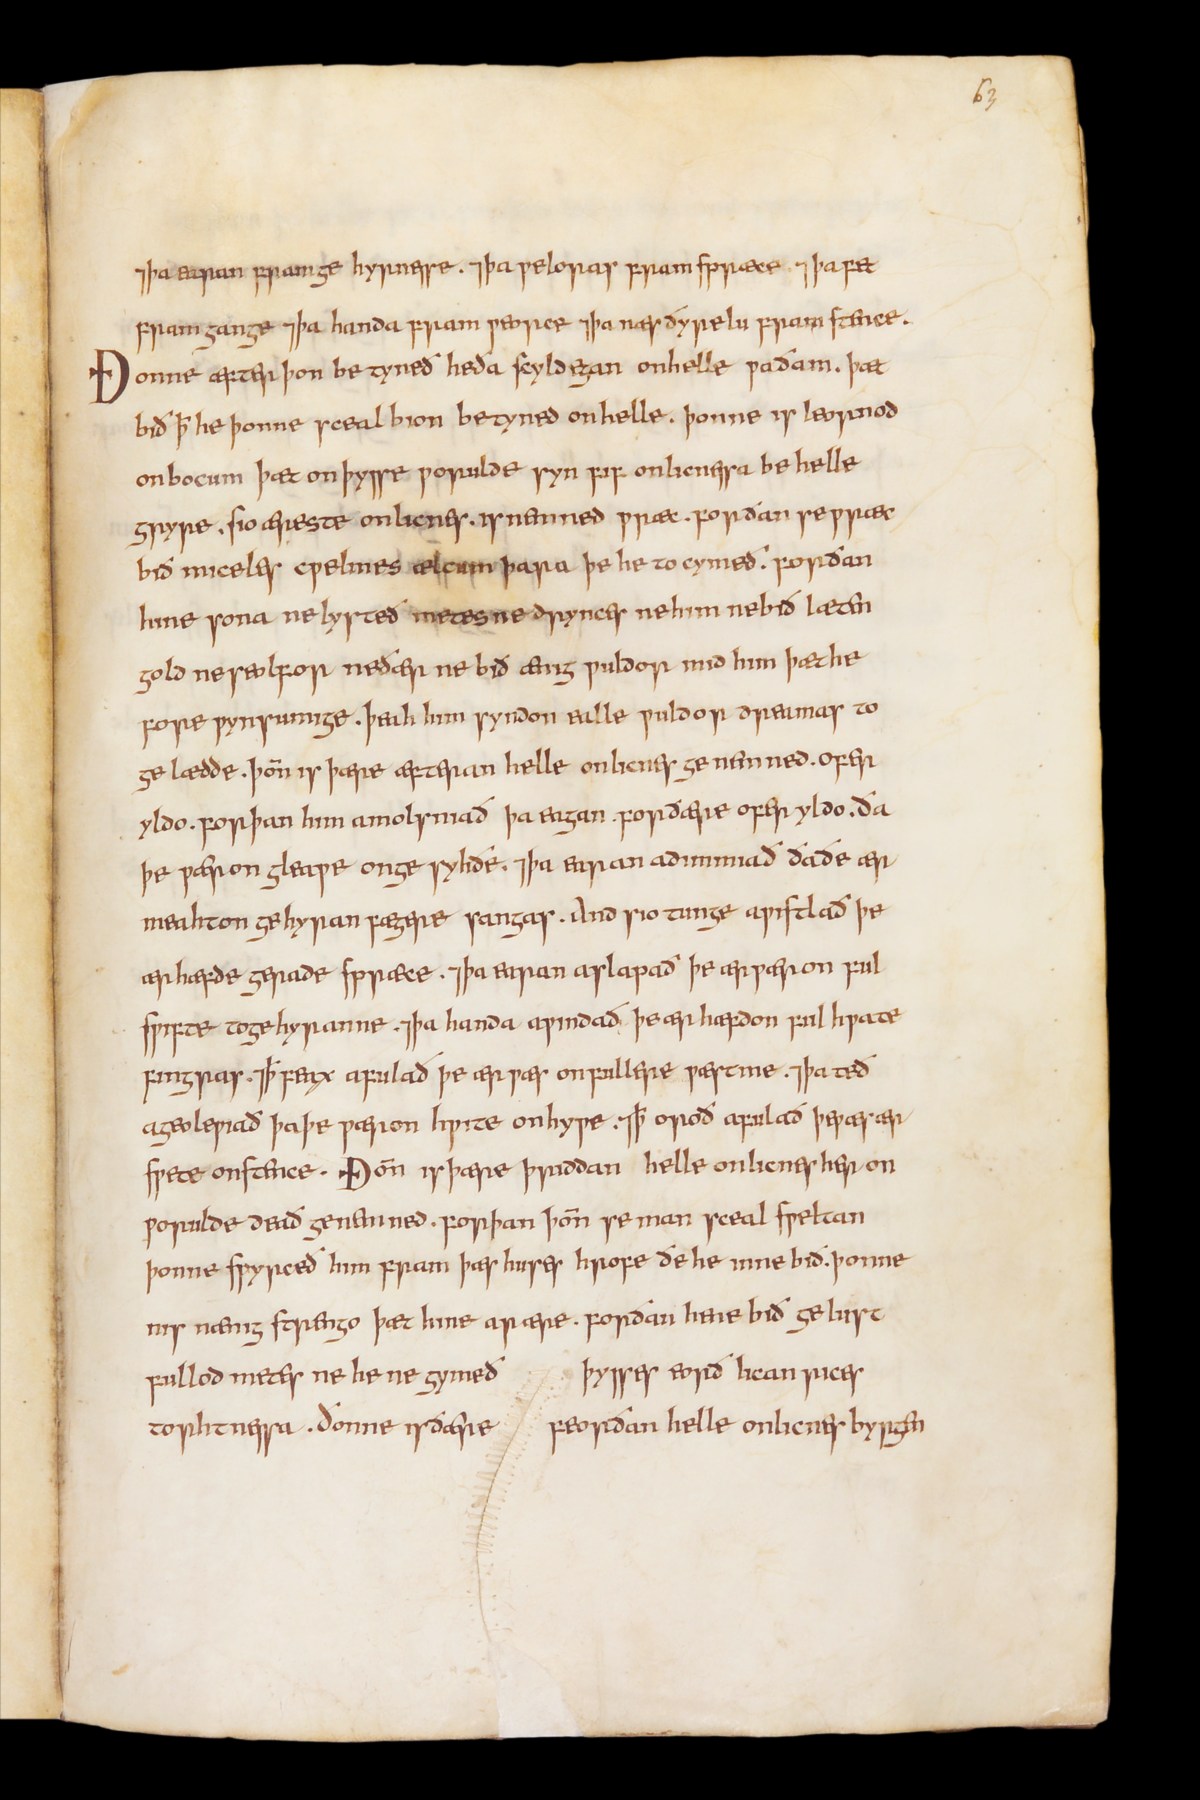 63
⁊ þa earan fram ge hyrnesse . ⁊ þa ƿeloras fram spræce . ⁊ þa fet
fram gange ⁊ þa handa fram ƿeorce ⁊ þa næs ðyrelu fram stence .
Ðonne æfter þon be tyneð heða scyldegan on helle ƿaðam . þæt
bið þ̄ he þonne sceal bion betyned on helle . þonne is leornod
on bocum þæt on þysse ƿorulde syn fif onlicnessa be helle
gryre . sio æreste onlicnes . is nemned ƿræc . forðan se ƿræc
bið miceles cƿelmes ælcum þara þe he to cymeð . forðan
hine sona ne lysteð metes ne drynces ne him ne bið læten
gold ne seolfor ne ðær ne bið ænig ƿuldor mid him þæt he
fore ƿynsumige . þeah him syndon ealle ƿuldor dreamas to
ge lædde . þoñ is þære æfteran helle onlicnes ge nemned . ofer
yldo . forþan him amolsniað þa eagan . for ðære ofer yldo . ða
þe ƿæron gleaƿe on ge syhðe . ⁊ þa earan adimmiað ða ðe ær
meahton ge hyran fægere sangas . And sio tunge aƿistlað þe
ær hæfde gerade spræce . ⁊ þa earan aslapað þe ær ƿæron ful
sƿifte to ge hyranne . ⁊ þa handa aƿindað þe ær hæfdon ful hƿate
fingras . ⁊ þ̄ feax afulað þe ær ƿæs on fullere ƿæstme . ⁊ þa teð
ageoleƿiað þa þe ƿæron hƿite on hyƿe . ⁊ þ̄ oroð afulað þe ƿæs ær
sƿete on stence . Ðoñ is þære þriddan helle onlicnes her on
ƿorulde deað ge nemned . forþan þoñ se man sceal sƿeltan
þonne sƿyrceð him fram þæs huses hrofe ðe he inne bið . þonne
nis nænig strengo þæt hine arære . forðan he ne bið ge lust
fullod metes ne he ne gymeð þysses eorð lican rices
torhtnessa . Ðonne is ðære feorðan helle onlicnes byrgen